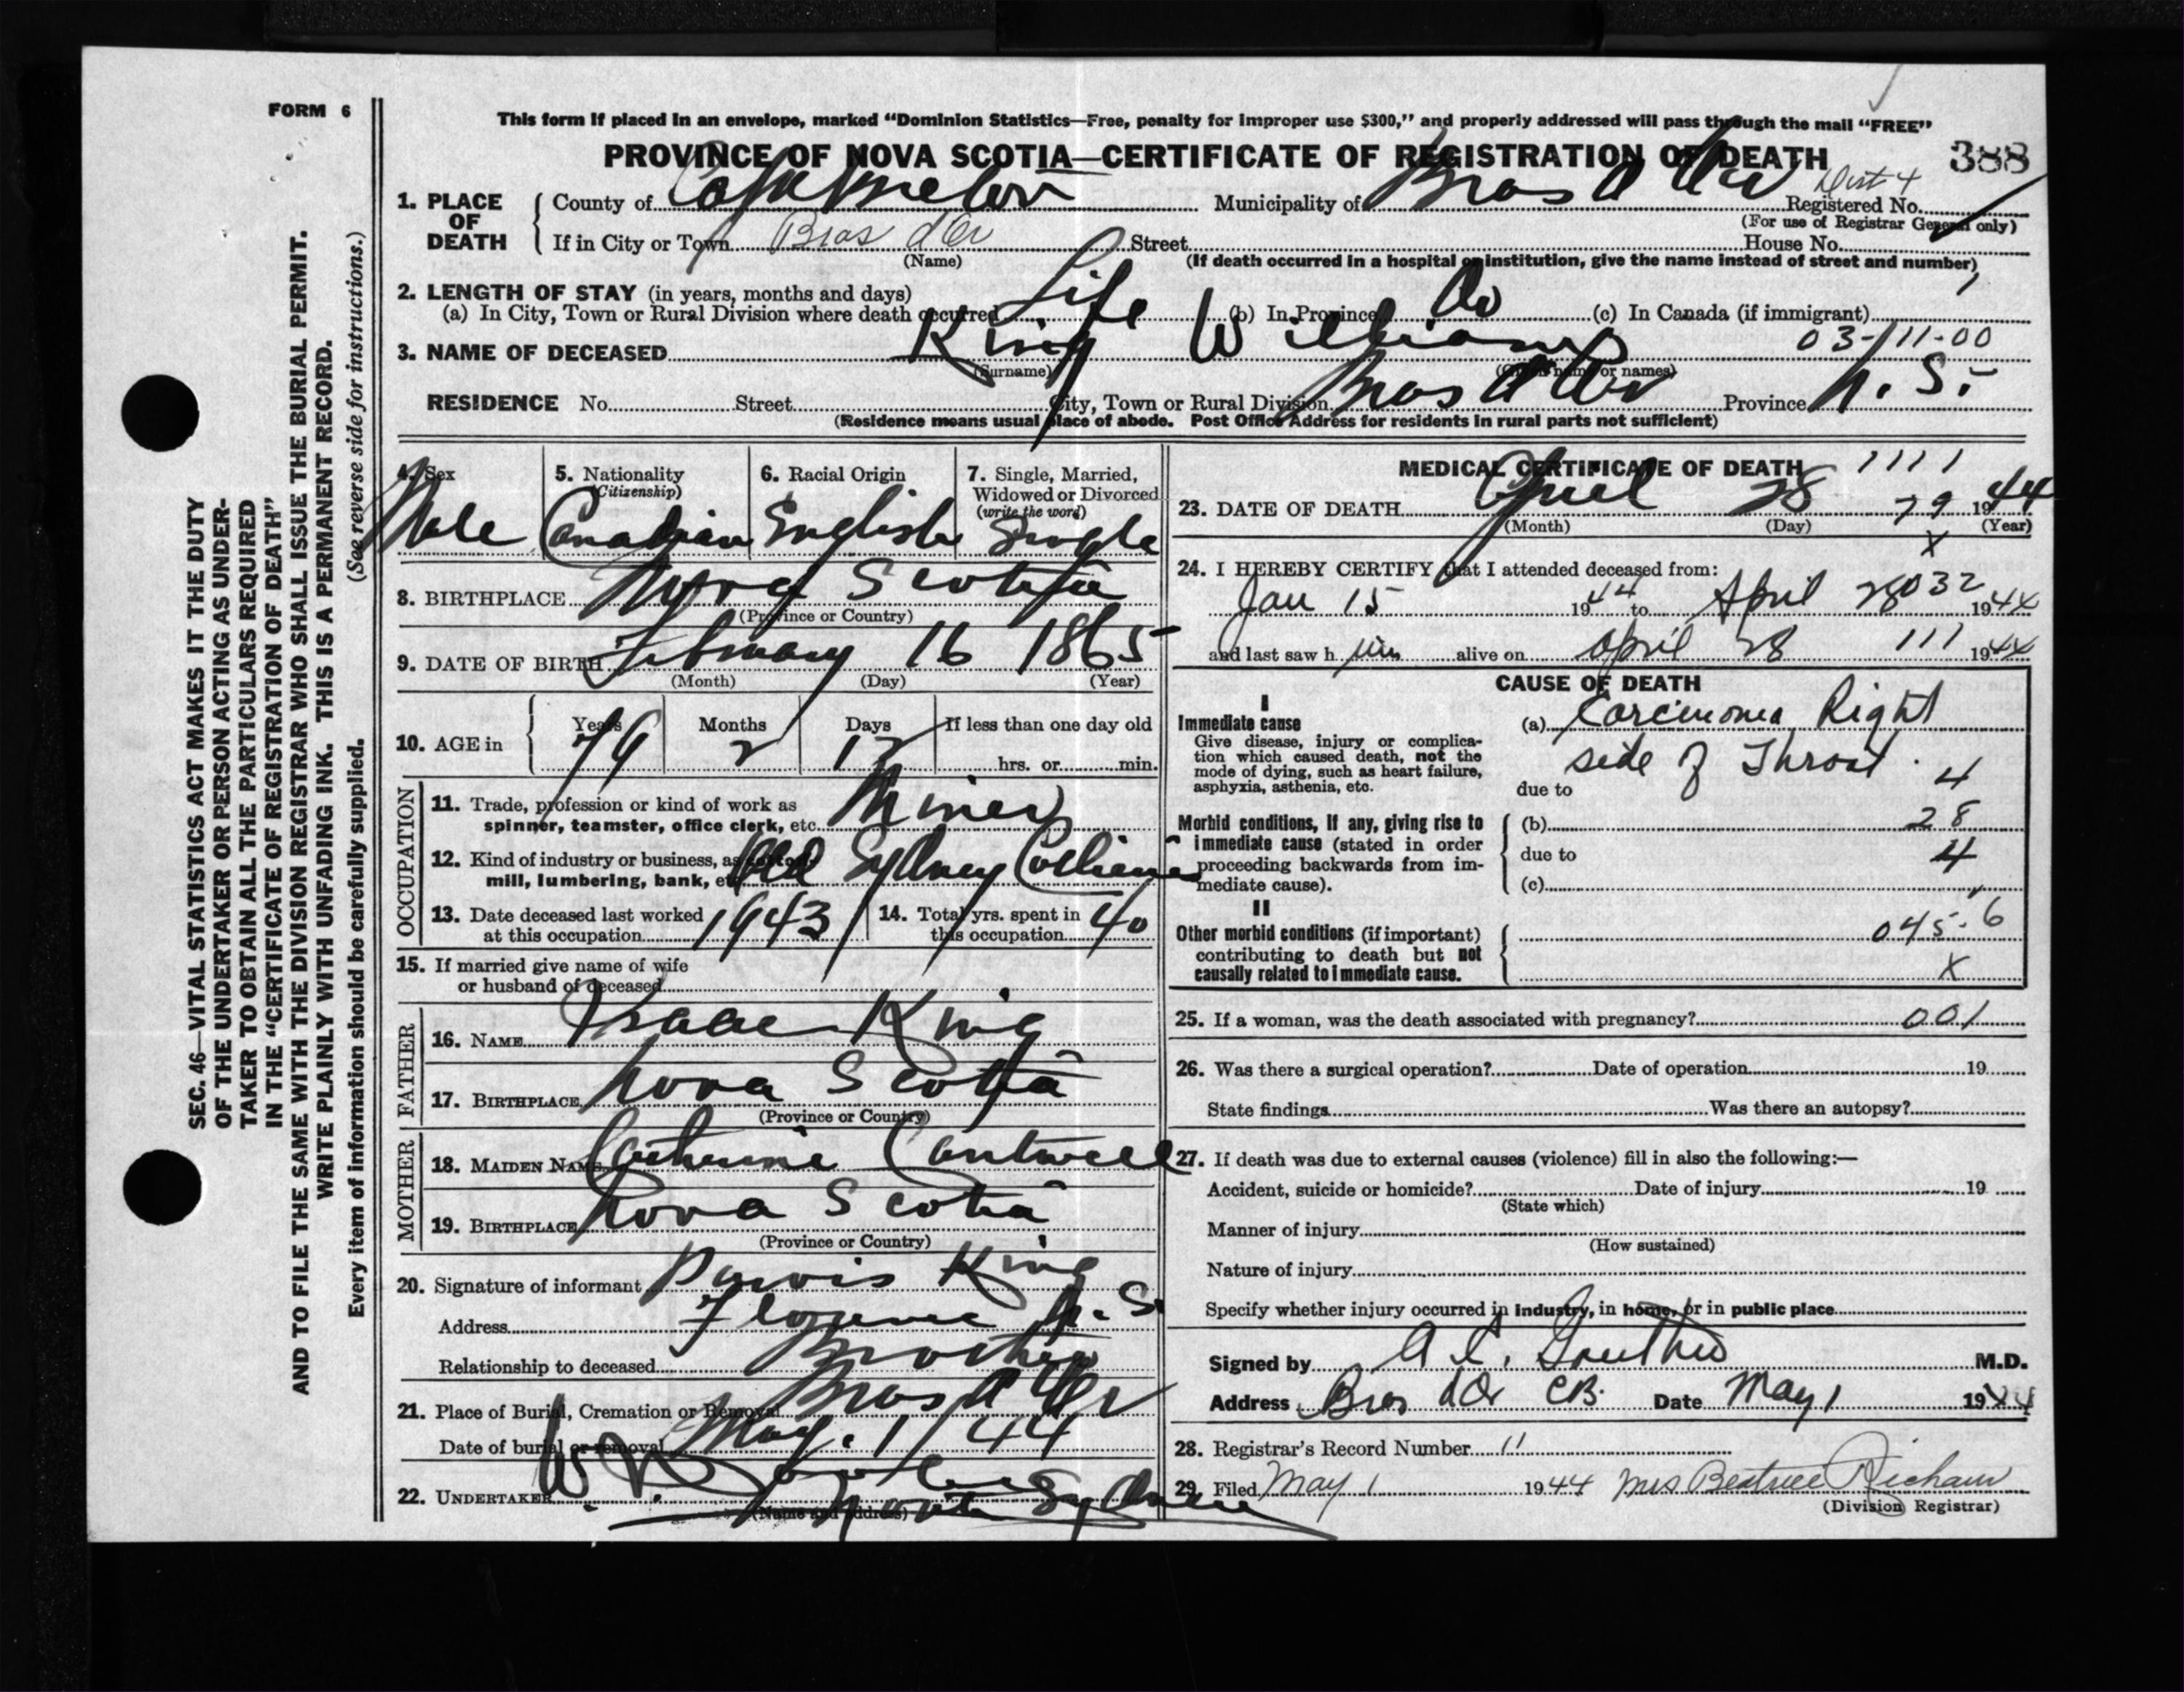 FORM 6
SEC. 46—VITAL STATISTICS ACT MAKES IT THE DUTY
OF THE UNDERTAKER OR PERSON ACTING AS UNDER-
TAKER TO OBTAIN ALL THE PARTICULARS REQUIRED
IN THE "CERTIFICATE OF REGISTRATION OF DEATH"
AND TO FILE THE SAME WITH THE DIVISION REGISTRAR WHO SHALL ISSUE THE BURIAL PERMIT.
WRITE PLAINLY WITH UNFADING INK. THIS IS A PERMANENT RECORD.
Every item of information should be carefully supplied. (See reverse side for instructions.)
This form if placed in an envelope, marked "Dominion Statistics—Free, penalty for improper use $300," and properly addressed will pass through the mail "FREE"
PROVINCE OF NOVA SCOTIA—CERTIFICATE OF REGISTRATION OF DEATH 388
1. PLACE OF DEATH County of Cape Breton Municipality of Bras d'Or Dist 4 Registered No.
(For use of Registrar General only)
If in City or Town Bras d'Or Street House No.
(Name) (If death occurred in a hospital or institution, give the name instead of street and number)
2. LENGTH OF STAY (in years, months and days)
(a) In City, Town or Rural Division where death occurred Life (b) In Province Do (c) In Canada (if immigrant)
3. NAME OF DECEASED King William 03-111-00
(Surname) (Given name or names)
RESIDENCE No. Street City, Town or Rural Division Bras d'Or Province N.S.
(Residence means usual place of abode. Post Office Address for residents in rural parts not sufficient)
4. Sex 5. Nationality (Citizenship) 6. Racial Origin 7. Single, Married, Widowed or Divorced (write the word)
Male Canadian English Single
8. BIRTHPLACE Nova Scotia
(Province or Country)
9. DATE OF BIRTH February 16 1865
(Month) (Day) (Year)
10. AGE in Years Months Days If less than one day old
79 2 12 hrs. or min.
OCCUPATION
11. Trade, profession or kind of work as
spinner, teamster, office clerk, etc. Miner
12. Kind of industry or business, as cotton-
mill, lumbering, bank, etc. Old Sydney Collieries
13. Date deceased last worked at this occupation 1943 14. Total yrs. spent in this occupation 40
15. If married give name of wife
or husband of deceased
FATHER
16. NAME Isaac King
17. BIRTHPLACE Nova Scotia
(Province or Country)
MOTHER
18. MAIDEN NAME Catherine Cantwell
19. BIRTHPLACE Nova Scotia
(Province or Country)
20. Signature of informant King
Address Florence N.S
Relationship to deceased Brother
21. Place of Burial, Cremation or Removal Bras d'Or
Date of burial or removal May. 1/44
22. UNDERTAKER North Sydney
(Name and address)
MEDICAL CERTIFICATE OF DEATH 1111
23. DATE OF DEATH April 28 79 1944
(Month) (Day) (Year)
X
24. I HEREBY CERTIFY that I attended deceased from:
Jan 15 1944 to April 28 032 1944
and last saw h im alive on April 28 111 1944
CAUSE OF DEATH
I
Immediate cause (a) Carcinoma Right
Give disease, injury or complica-
tion which caused death, not the
mode of dying, such as heart failure,
asphyxia, asthenia, etc.
side of Throat. 4
due to
Morbid conditions, if any, giving rise to
immediate cause (stated in order
proceeding backwards from im-
mediate cause).
(b) 28
due to 4
(c)
II
Other morbid conditions (if important)
contributing to death but not
causally related to immediate cause.
045-6
X
25. If a woman, was the death associated with pregnancy? 001
26. Was there a surgical operation? Date of operation 19
State findings Was there an autopsy?
27. If death was due to external causes (violence) fill in also the following:—
Accident, suicide or homicide? Date of injury 19
(State which)
Manner of injury
(How sustained)
Nature of injury
Specify whether injury occurred in industry, in home, or in public place
Signed by M.D.
Address Bras d'Or CB. Date May 1 1944
28. Registrar's Record Number 11
29. Filed May 1 1944 Mrs Beatrice
(Division Registrar)